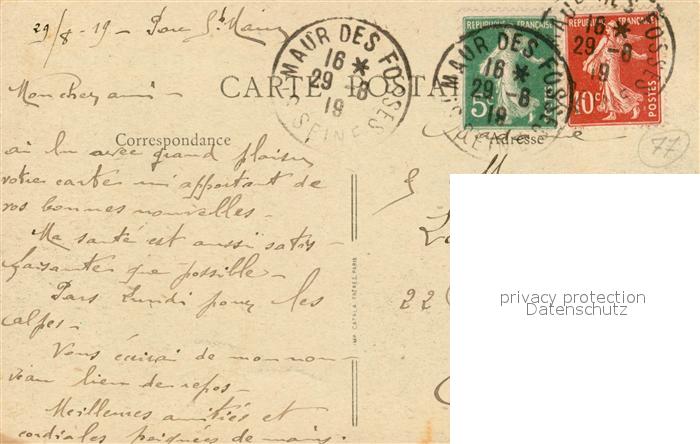 29/8-19- Parc St Maur
ST MAUR DES FOSSÉS
16 *
29 -8
19
SEINE
ST MAUR DES FOSSÉS
16 *
29 -8
19
16 *
29 -8
19
FOSSÉS
REPUBLIQUE FRANÇAISE
5c
REPUBLIQUE FRANÇAISE
10c
POSTES
CARTE POSTALE
Mon cher ami -
Correspondance
Adresse
77
ai lu avec grand plaisir
votre carte m'apportant de
vos bonnes nouvelles -
Ma santé est aussi satis-
faisante que possible -
Pars Lundi pour les
alpes -
Vous écrirai de mon nou-
veau lieu de repos -
Meilleures amitiés et
cordiales poignées de mains.
22
IMP. CATALA FRÈRES, PARIS
privacy protection
Datenschutz